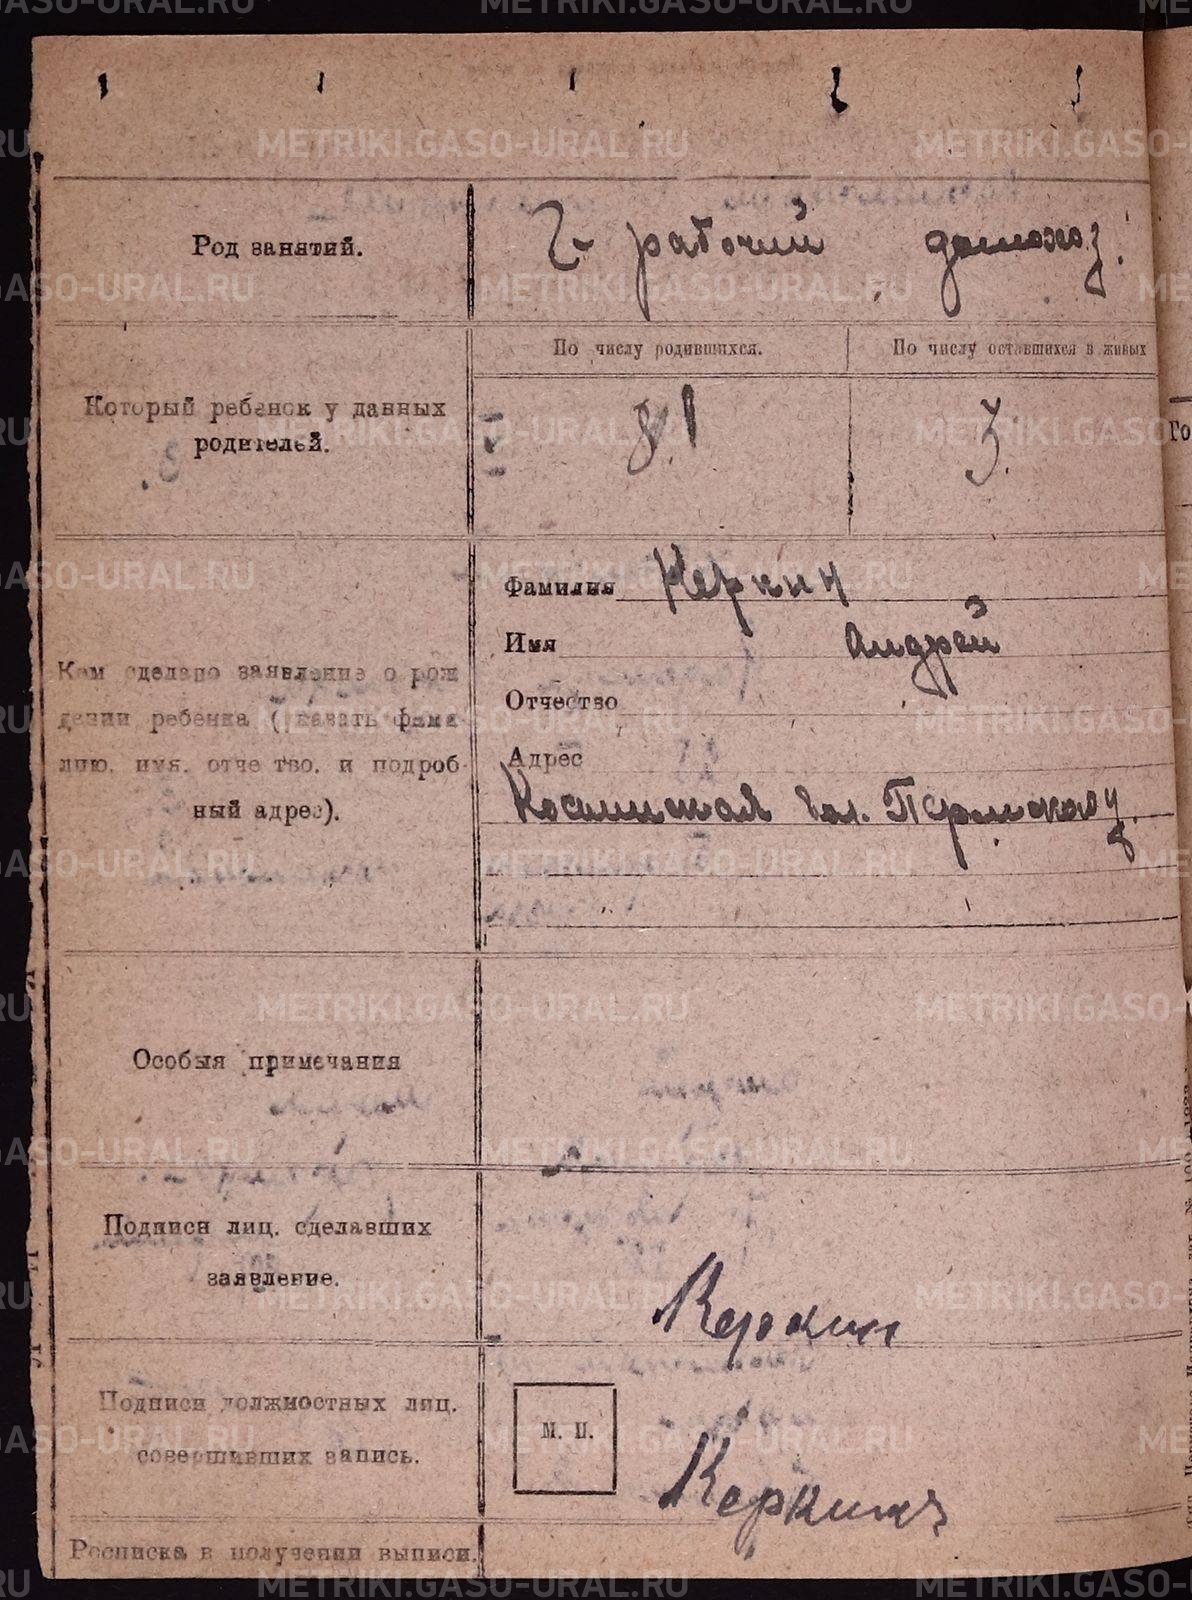 Род занятий.
Ч-рабочий домохоз.
По числу родившихся.
По числу оставшихся в живых
Который ребенок у данных
родителей.
8.
3.
Фамилия Керкин
Имя Андрей
Отчество
Адрес
Кослинская вол. Пермского у.
Кем сделано заявление о рож
дении ребенка (указать фами-
лию, имя, отчество, и подроб-
ный адрес).
Особыя примечания
Подписи лиц, сделавших
заявление.
Керкин
Подписи должностных лиц,
совершивших запись.
М. П.
Росписка в получении выписи.
METRIKI.GASO-URAL.RU